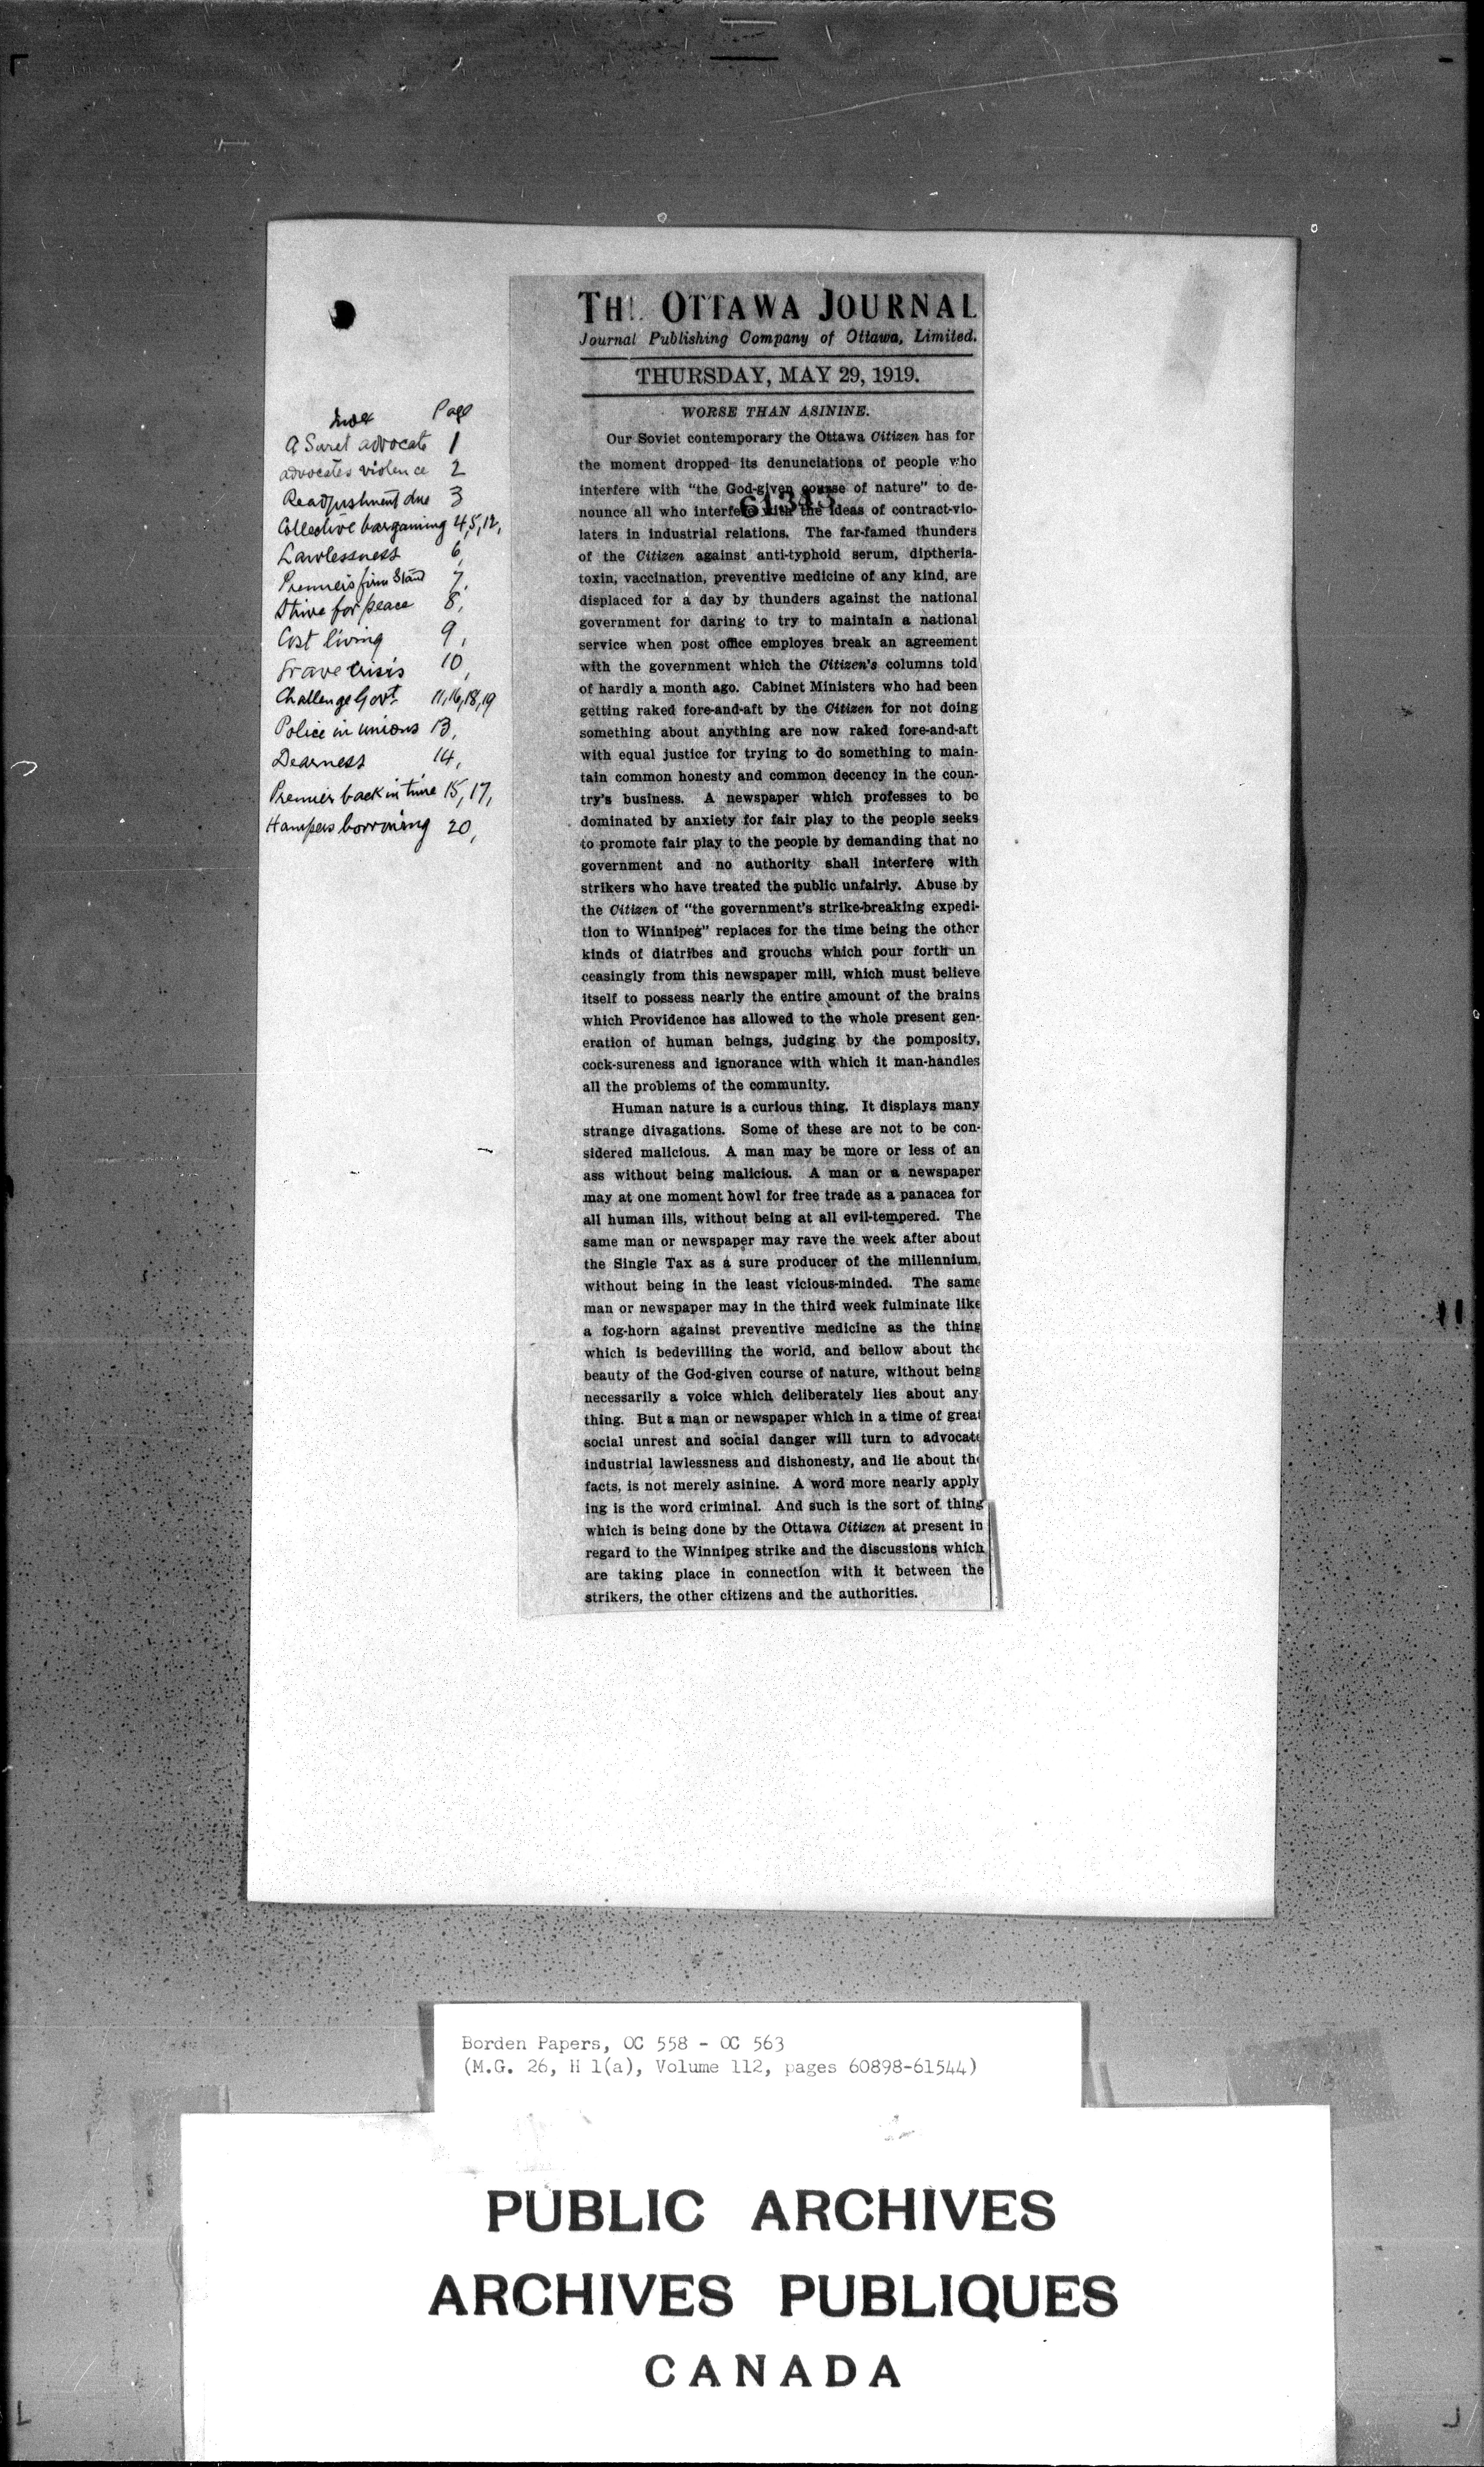 Index Page
A Soviet advocate 1
advocates violence 2
Readjustment due 3
Collective bargaining 4,5,12,
Lawlessness 6,
Premier's firm Stand 7,
Strive for peace 8,
Cost living 9,
Grave crisis 10,
Challenge Govt. 11,16,18,19
Police in unions 13,
Dearness 14,
Premier back in time 15, 17,
Hampers borrowing 20,
THE OTTAWA JOURNAL
Journal Publishing Company of Ottawa, Limited.
THURSDAY, MAY 29, 1919.
WORSE THAN ASININE.
Our Soviet contemporary the Ottawa Citizen has for
the moment dropped its denunciations of people who
interfere with "the God-given course of nature" to de-
61343
nounce all who interfere with the ideas of contract-vio-
laters in industrial relations. The far-famed thunders
of the Citizen against anti-typhoid serum, diptheria-
toxin, vaccination, preventive medicine of any kind, are
displaced for a day by thunders against the national
government for daring to try to maintain a national
service when post office employes break an agreement
with the government which the Citizen's columns told
of hardly a month ago. Cabinet Ministers who had been
getting raked fore-and-aft by the Citizen for not doing
something about anything are now raked fore-and-aft
with equal justice for trying to do something to main-
tain common honesty and common decency in the coun-
try's business. A newspaper which professes to be
dominated by anxiety for fair play to the people seeks
to promote fair play to the people by demanding that no
government and no authority shall interfere with
strikers who have treated the public unfairly. Abuse by
the Citizen of "the government's strike-breaking expedi-
tion to Winnipeg" replaces for the time being the other
kinds of diatribes and grouchs which pour forth un
ceasingly from this newspaper mill, which must believe
itself to possess nearly the entire amount of the brains
which Providence has allowed to the whole present gen-
eration of human beings, judging by the pomposity,
cock-sureness and ignorance with which it man-handles
all the problems of the community.
Human nature is a curious thing. It displays many
strange divagations. Some of these are not to be con-
sidered malicious. A man may be more or less of an
ass without being malicious. A man or a newspaper
may at one moment howl for free trade as a panacea for
all human ills, without being at all evil-tempered. The
same man or newspaper may rave the week after about
the Single Tax as a sure producer of the millennium,
without being in the least vicious-minded. The same
man or newspaper may in the third week fulminate like
a fog-horn against preventive medicine as the thing
which is bedevilling the world, and bellow about the
beauty of the God-given course of nature, without being
necessarily a voice which deliberately lies about any
thing. But a man or newspaper which in a time of great
social unrest and social danger will turn to advocate
industrial lawlessness and dishonesty, and lie about the
facts, is not merely asinine. A word more nearly apply
ing is the word criminal. And such is the sort of thing
which is being done by the Ottawa Citizen at present in
regard to the Winnipeg strike and the discussions which
are taking place in connection with it between the
strikers, the other citizens and the authorities.
Borden Papers, OC 558 - OC 563
(M.G. 26, H 1(a), Volume 112, pages 60898-61544)
PUBLIC ARCHIVES
ARCHIVES PUBLIQUES
CANADA